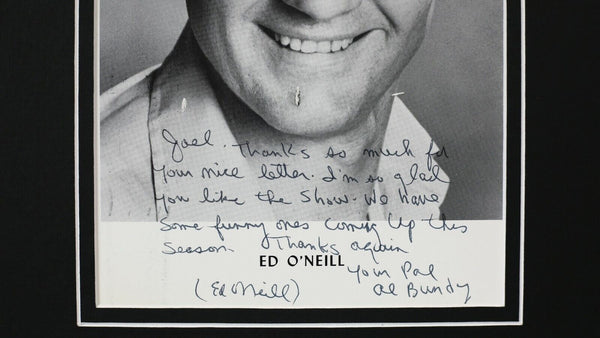 Joel. Thanks so much for
your nice letter. I'm so glad
you like the show. We have
some funny ones coming up this
season. Thanks again
ED O'NEILL
Your Pal
Al Bundy
(Ed O'Neill)